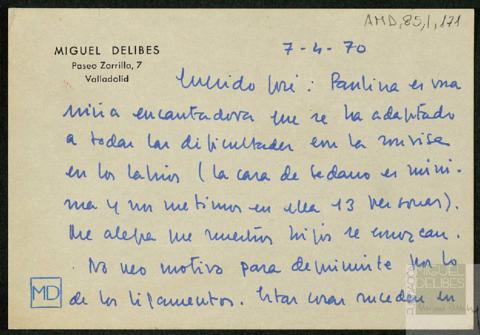 AMD, 85, 1, 171
MIGUEL DELIBES
Paseo Zorrilla, 7
Valladolid
7-4-70
Querido José: Paulina es una
niña encantadora que se ha adaptado
a todas las dificultades con la sonrisa
en los labios (la casa de Sedano es míni-
ma y nos metimos en ella 13 personas).
Me alegra que nuestros hijos se conozcan.
No veo motivo para deprimirte por lo
de los ligamentos. Estas cosas suceden en
MD
MIGUEL
DELIBES